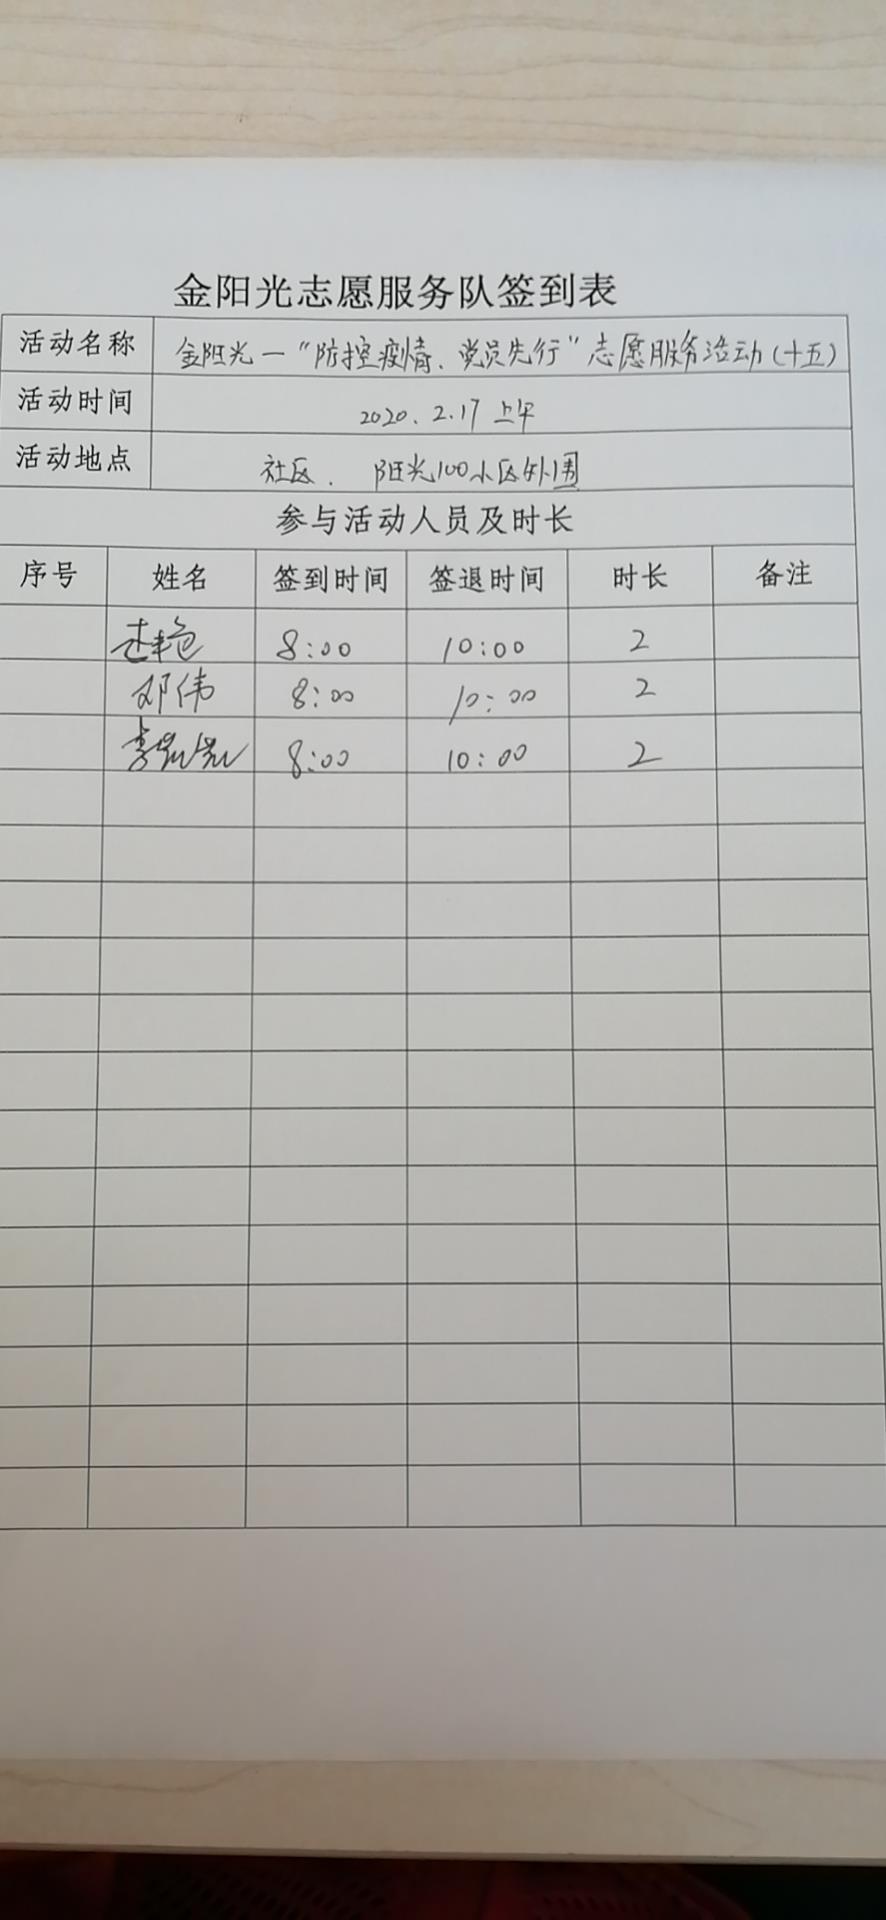 金阳光志愿服务队签到表
活动名称 金阳光一“防控疫情、党员先行”志愿服务活动(十五)
活动时间 2020.2.17 上午
活动地点 社区、阳光100小区外围
参与活动人员及时长
序号 姓名 签到时间 签退时间 时长 备注
8:00 10:00 2
邓伟 8:00 10:00 2
李 8:00 10:00 2